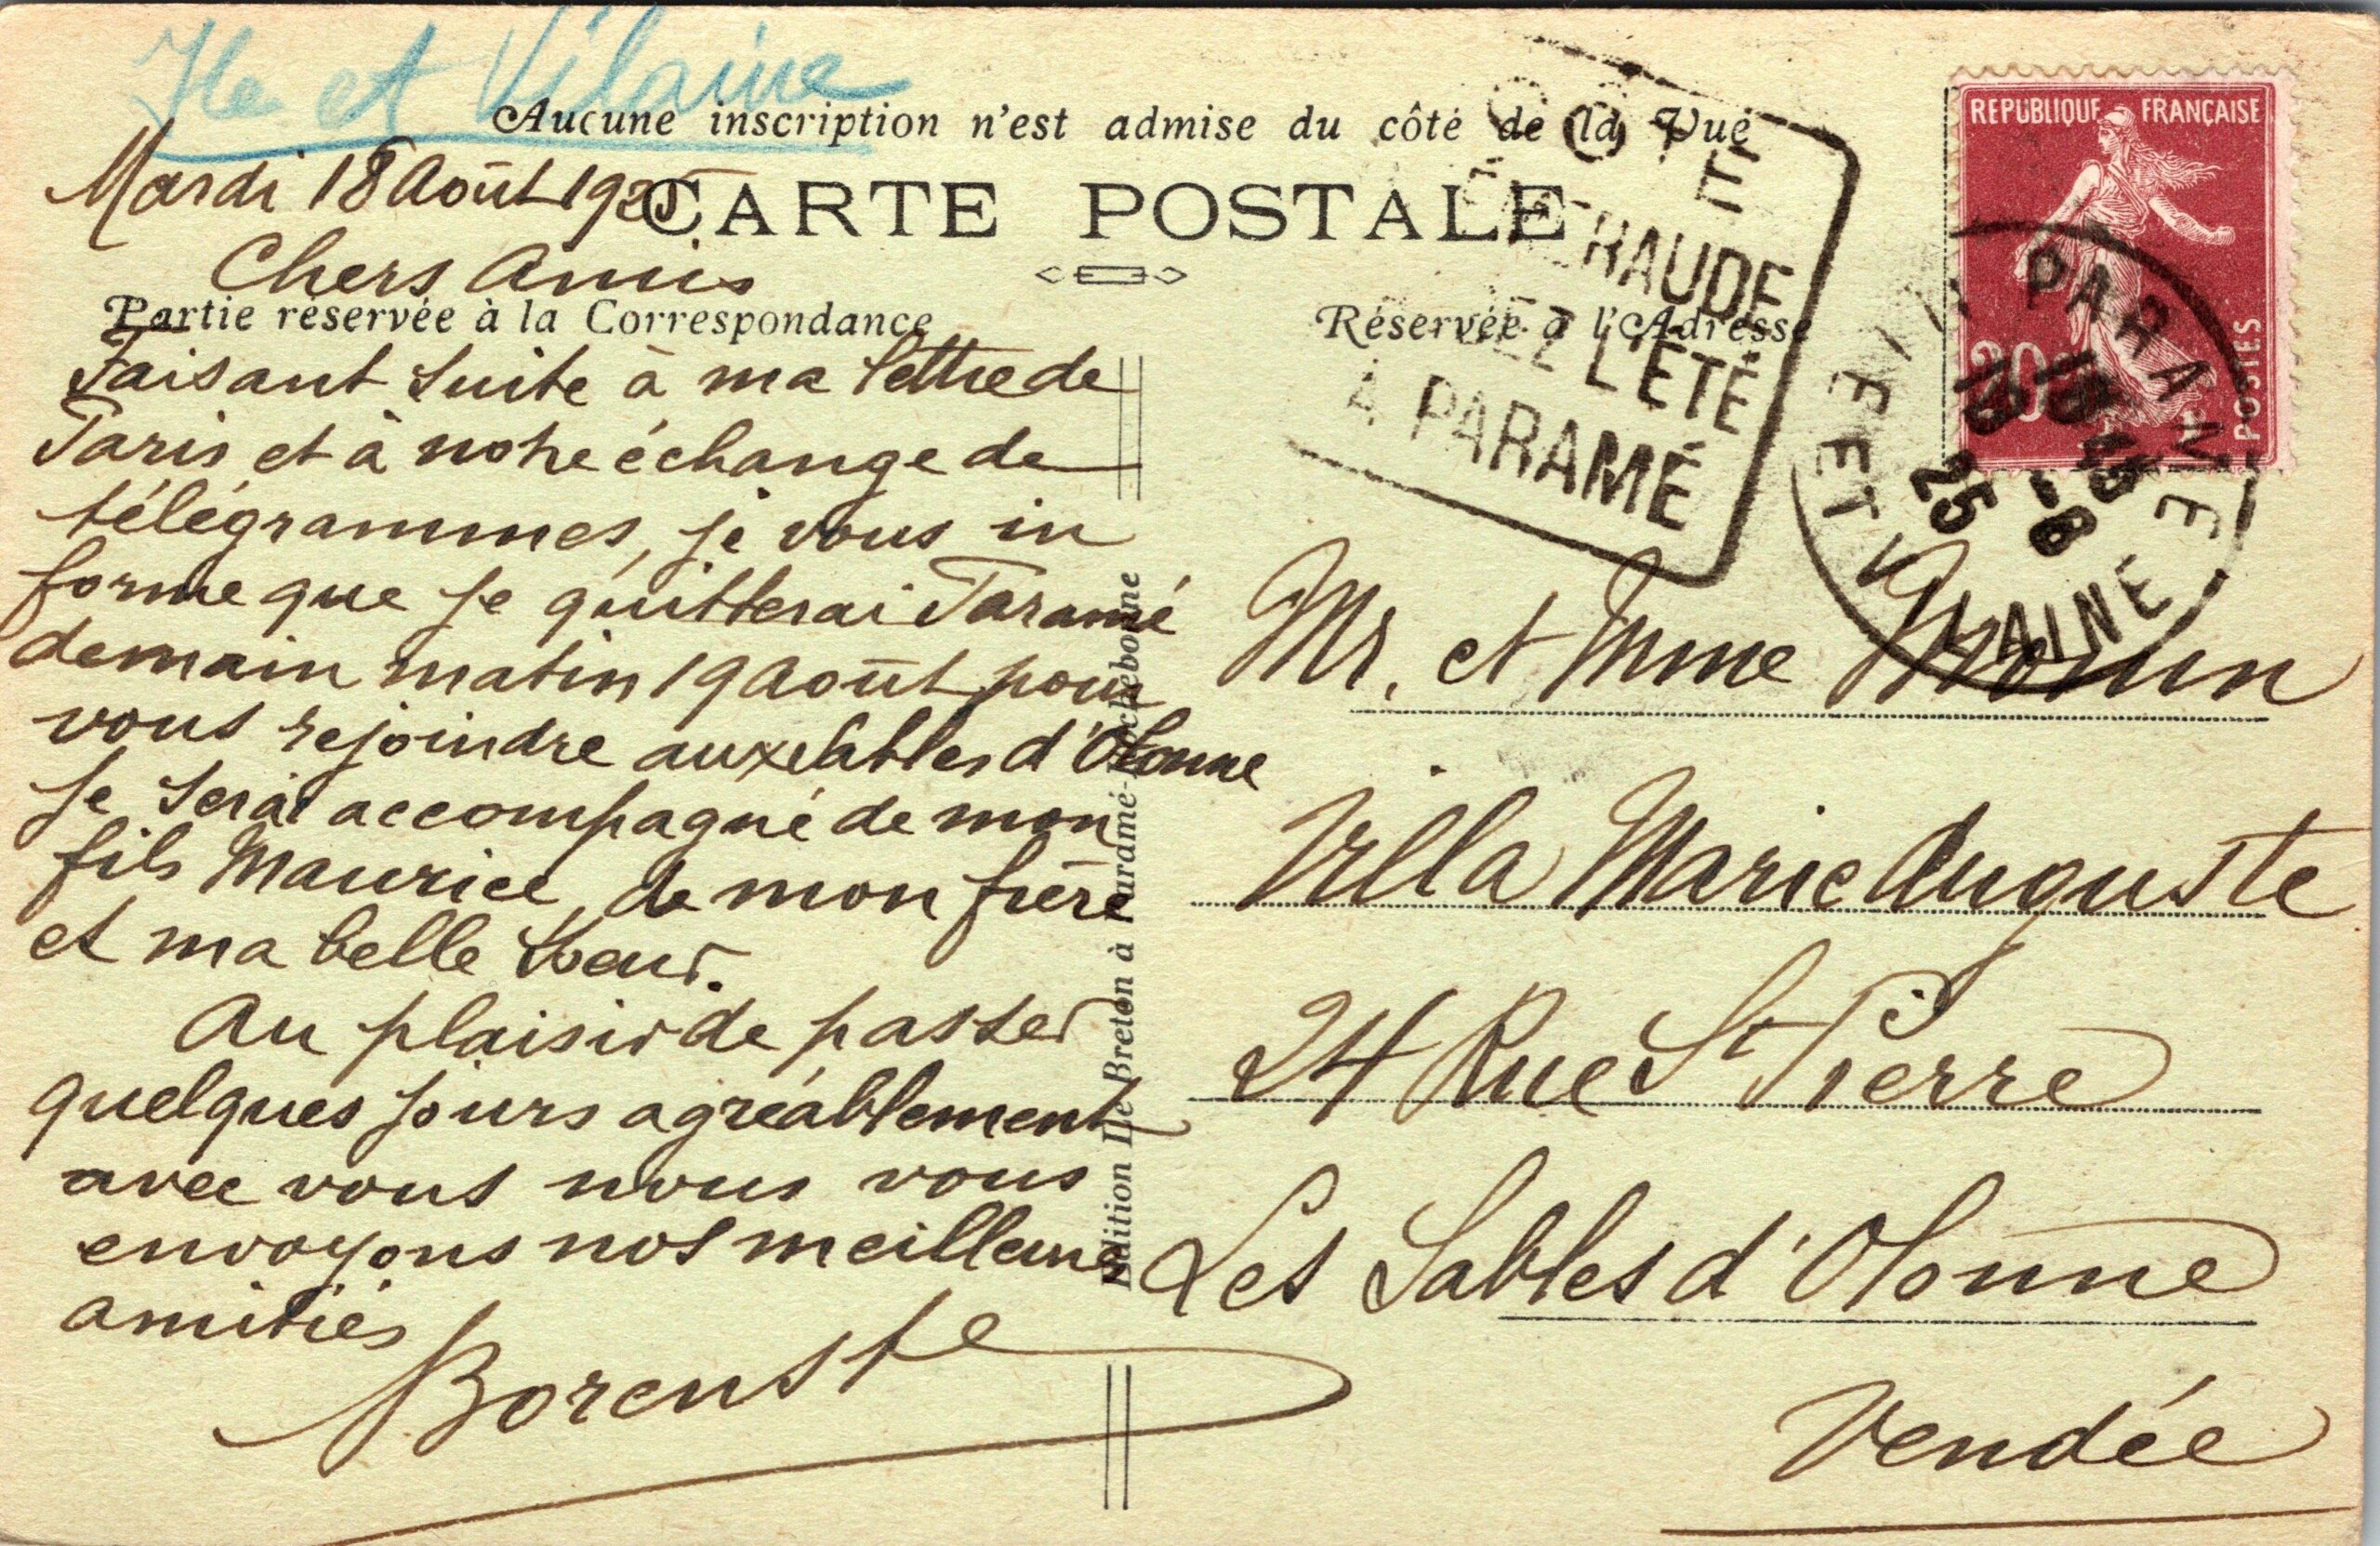 Ile et Vilaine
Aucune inscription n'est admise du côté de la Vue
Mardi 18 Août 1925
CARTE POSTALE
Chers Amis
Partie réservée à la Correspondance
Réservée à l'Adresse
Faisant suite à ma lettre de
Paris et à notre échange de
télégrammes, je vous in
forme que je quitterai Paramé
demain matin 19 Août pour
vous rejoindre aux Sables d'Olonne
Je serai accompagné de mon
fils Maurice, de mon frère
et ma belle soeur.
Au plaisir de passer
quelques jours agréablement
avec vous nous vous
envoyons nos meilleures
amitiés
Edition Le Breton à Paramé-Rochebonne
CÔTE
ÉMERAUDE
L'ÉTÉ
À PARAMÉ
REPUBLIQUE FRANÇAISE
20
POSTES
PARAMÉ
ET VILAINE
18 45
-8
25
Mr. et Mme
Villa Marie Auguste
24 Rue St Pierre
Les Sables d'Olonne
Vendée